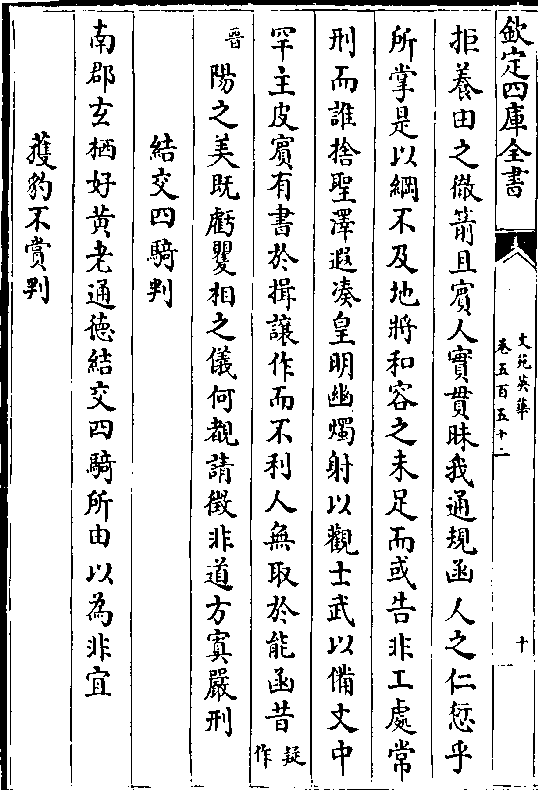 欽定四庫全書
文苑英華
卷五百五十二
十
拒養由之微箭且賓人實貫昧我通規函人之仁愆乎
所掌是以綱不及地將和容之未足而或告非工處常
刑而誰捨聖澤遐湊皇明幽燭射以觀士武以備文中
罕主皮賓有書於揖讓作而不利人無取於能函昔疑作
晉陽之美既虧矍相之儀何覩請徵非道方寘嚴刑
結交四騎判
南郡玄栖好黄老通德結交四騎所由以為非宜
獲豹不賞判